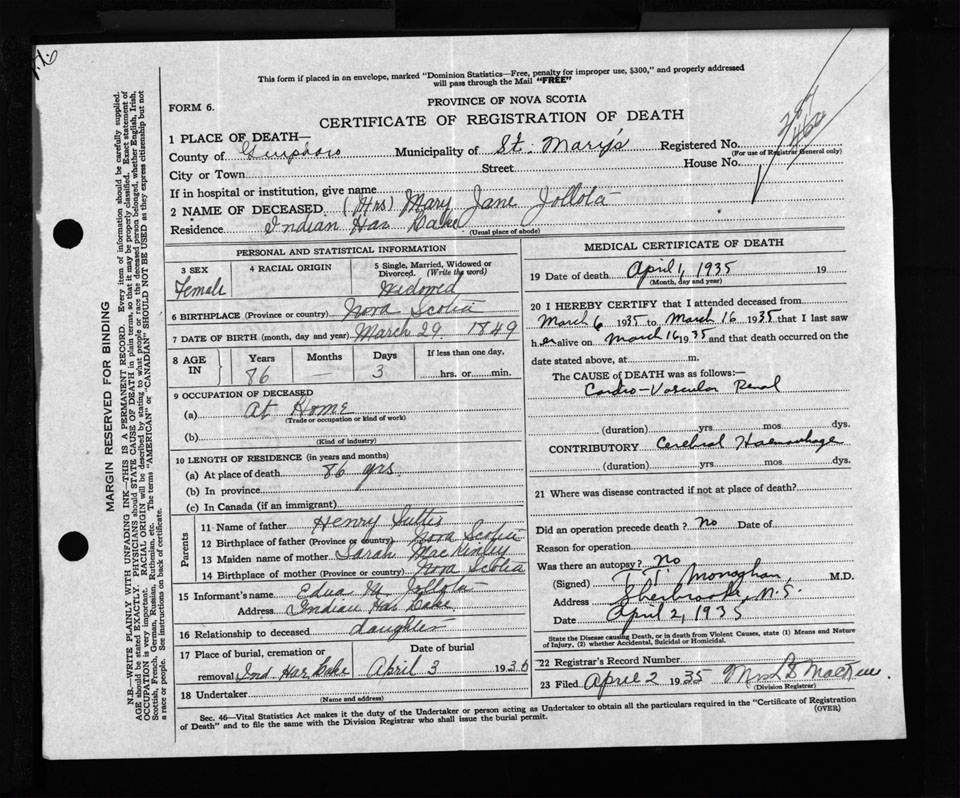 This form if placed in an envelope, marked "Dominion Statistics—Free, penalty for improper use, $300," and properly addressed
will pass through the Mail "FREE"
PROVINCE OF NOVA SCOTIA
FORM 6.
CERTIFICATE OF REGISTRATION OF DEATH
1 PLACE OF DEATH—
County of Municipality of St. Mary's Registered No.
(For use of Registrar General only)
City or Town Street House No.
If in hospital or institution, give name
2 NAME OF DECEASED (Mrs) Mary Jane Jollota
Residence Indian Har Lake
(Usual place of abode)
PERSONAL AND STATISTICAL INFORMATION
3 SEX Female
4 RACIAL ORIGIN
5 Single, Married, Widowed or Divorced. (Write the word)
Widowed
6 BIRTHPLACE (Province or country) Nova Scotia
7 DATE OF BIRTH (month, day and year) March 29. 1849
8 AGE IN Years Months Days If less than one day,
86 — 3 hrs. or min.
9 OCCUPATION OF DECEASED
(a) At Home
(Trade or occupation or kind of work)
(b)
(Kind of industry)
10 LENGTH OF RESIDENCE (in years and months)
(a) At place of death 86 yrs.
(b) In province
(c) In Canada (if an immigrant)
Parents
11 Name of father Henry
12 Birthplace of father (Province or country) Nova Scotia
13 Maiden name of mother Sarah MacKinley
14 Birthplace of mother (Province or country) Nova Scotia
15 Informant's name Jollota
Address Indian Har Lake
16 Relationship to deceased daughter
17 Place of burial, cremation or removal Ind Har Lake
Date of burial
April 3 193
18 Undertaker
(Name and address)
MEDICAL CERTIFICATE OF DEATH
19 Date of death April 1, 1935 19
(Month, day and year)
20 I HEREBY CERTIFY that I attended deceased from
March 6 1935 to March 16 1935 that I last saw
h er alive on March 16 1935 and that death occurred on the
date stated above, at m.
The CAUSE of DEATH was as follows:—
Cardio-Vascular Renal
(duration) yrs mos. dys.
CONTRIBUTORY Cerebral Haemorrhage
(duration) yrs mos. dys.
21 Where was disease contracted if not at place of death?
Did an operation precede death? No Date of
Reason for operation
Was there an autopsy? No
(Signed) Monaghan, M.D.
Address Sherbrooke, N.S.
Date April 2, 1935
State the Disease causing Death, or in death from Violent Causes, state (1) Means and Nature
of Injury, (2) whether Accidental, Suicidal or Homicidal.
22 Registrar's Record Number
23 Filed April 2 1935
(Division Registrar)
Sec. 46—Vital Statistics Act makes it the duty of the Undertaker or person acting as Undertaker to obtain all the particulars required in the "Certificate of Registration
of Death" and to file the same with the Division Registrar who shall issue the burial permit.
(OVER)
MARGIN RESERVED FOR BINDING
N.B.—WRITE PLAINLY WITH UNFADING INK—THIS IS A PERMANENT RECORD. Every item of information should be carefully supplied.
AGE should be stated EXACTLY. PHYSICIANS should STATE CAUSE OF DEATH in plain terms, so that it may be properly classified. Exact statement of
OCCUPATION is very important. RACIAL ORIGIN will be described by stating to what people or race the deceased person belonged, whether English, Irish,
Scottish, French, German, Russian, Ruthenian, etc. The terms "AMERICAN" or "CANADIAN" SHOULD NOT BE USED as they express citizenship but not
a race or people. See instructions on back of certificate.